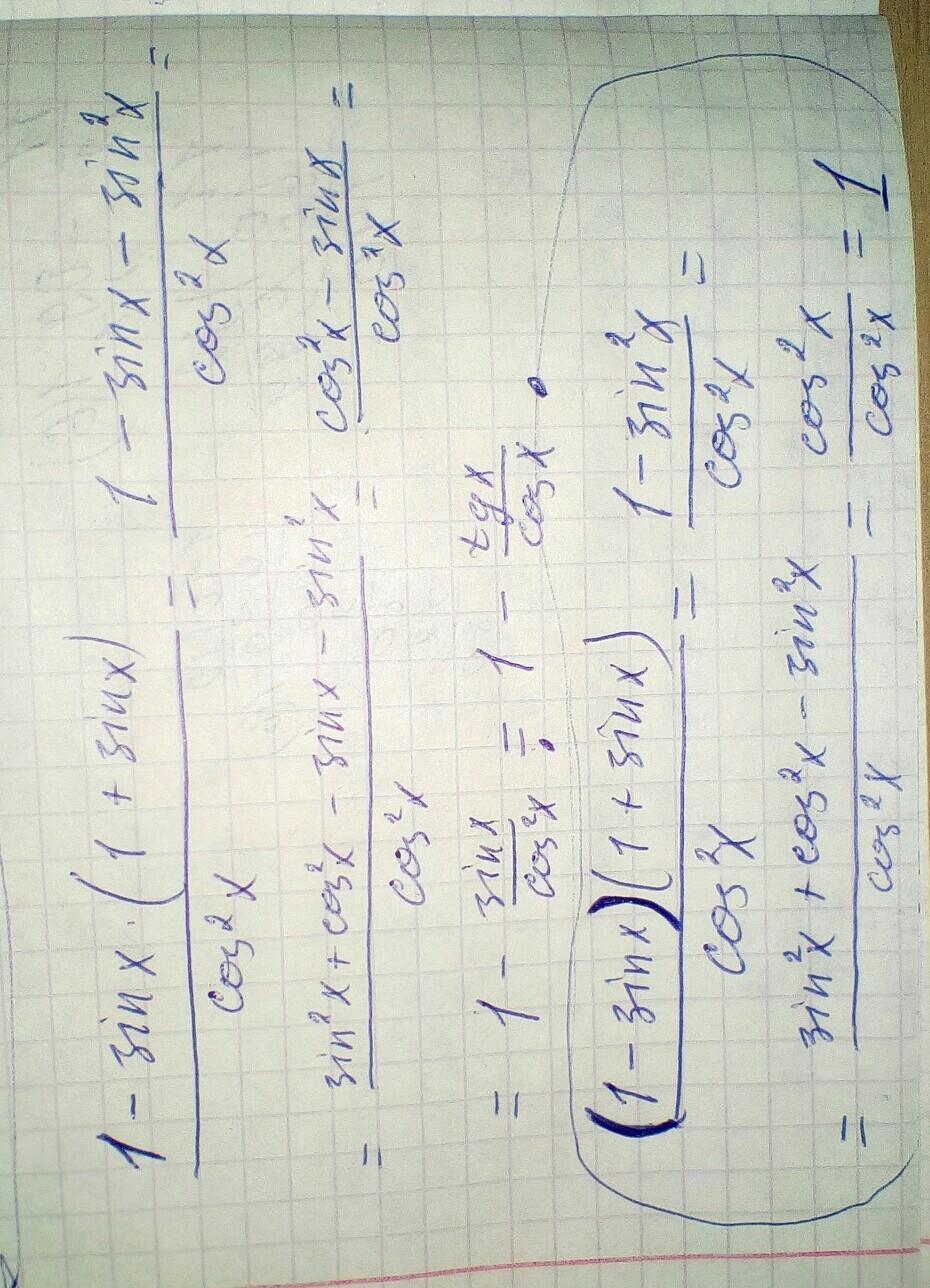 1 - sin x · (1 + sin x) / cos²x = 1 - sin x - sin²x / cos²x =
= sin²x + cos²x - sin x - sin²x / cos²x = cos²x - sin x / cos²x =
= 1 - sin x / cos²x = 1 - tg x / cos x .
(1 - sin x)(1 + sin x) / cos²x = 1 - sin²x / cos²x =
= sin²x + cos²x - sin²x / cos²x = cos²x / cos²x = 1